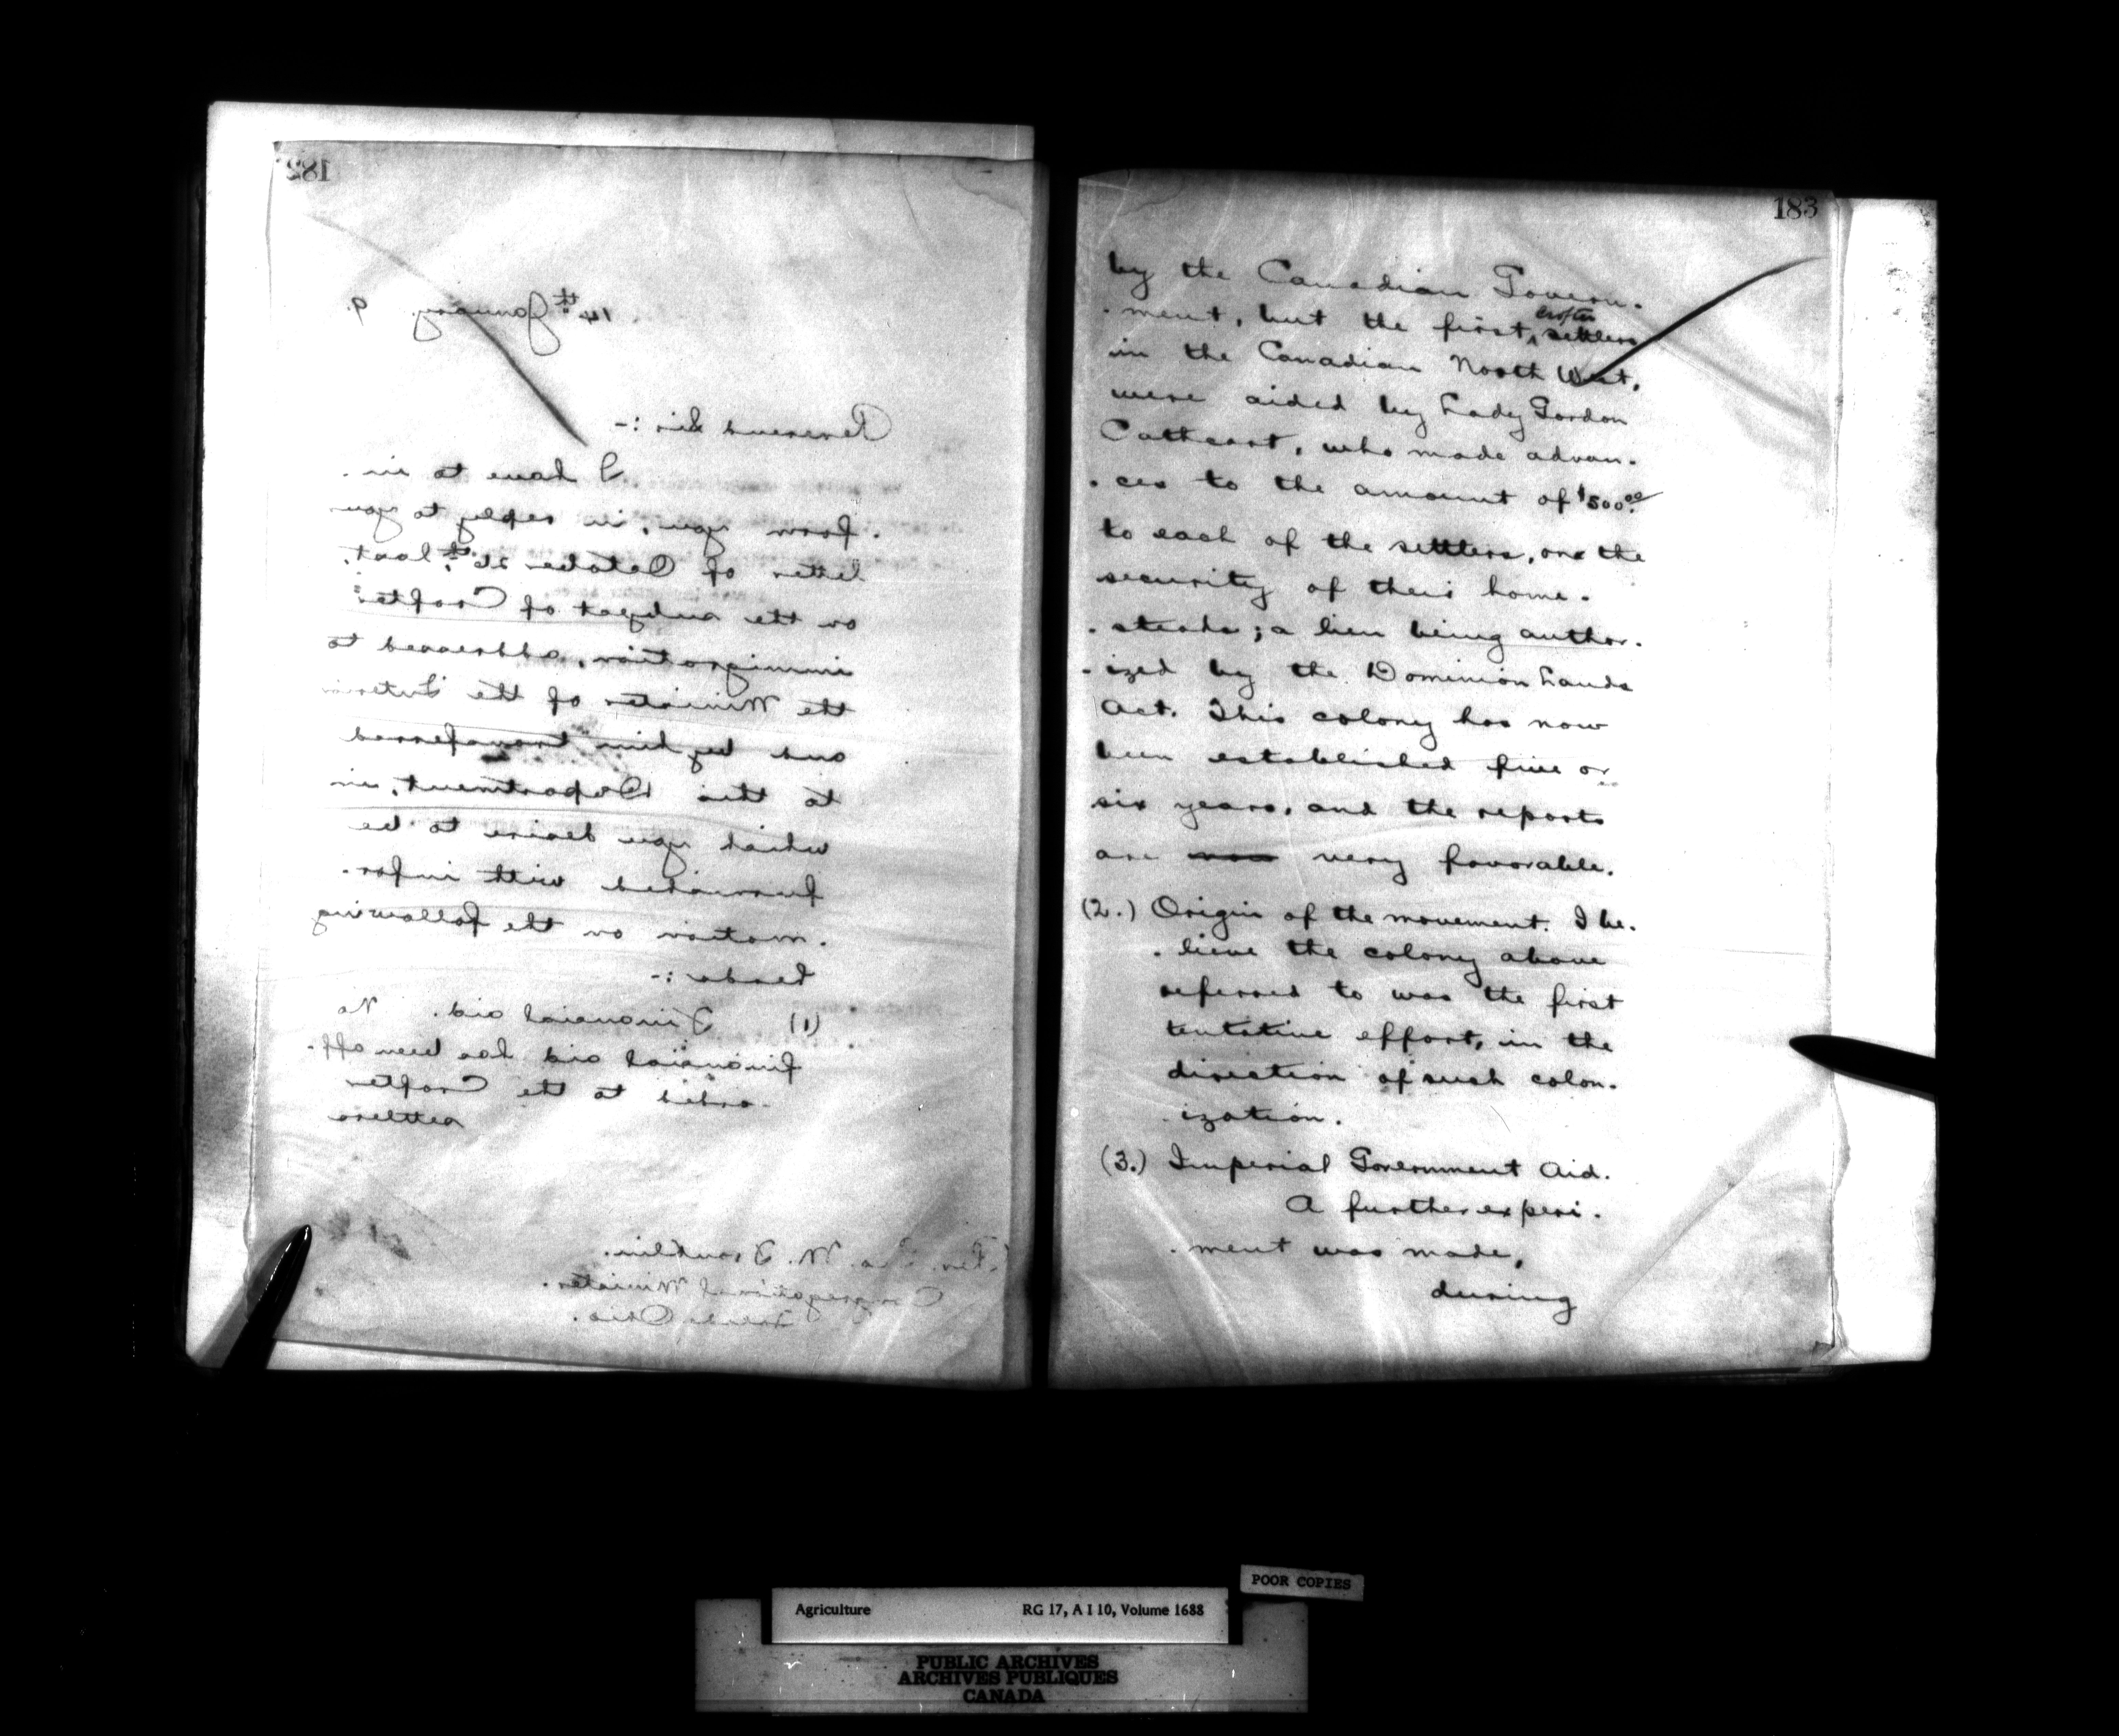 182
14th January, 9.
Reverend Sir :-
I have to in.
. form you, in reply to your
letter of October last,
on the subject of Crofter
immigration, addressed to
the Minister of the Interior
and by him transferred
to this Department, in
which you desire to be
furnished with infor.
. mation on the following
heads :-
(1) Financial aid. No
financial aid has been aff.
. orded to the Crofter
settlers
Rev. M.
Congregational Minister.
Ohio.
183
by the Canadian Govern.
. ment, but the first crofter settlers
in the Canadian North West,
were aided by Lady Gordon
Cathcart, who made advan.
. ces to the amount of $500.00
to each of the settlers, on the
security of their home.
. steads ; a lien being author.
. ized by the Dominion Lands
Act. This colony has now
been established five or
six years, and the reports
are very favorable.
(2.) Origin of the movement. I be.
. lieve the colony above
referred to was the first
tentative effort, in the
direction of such colon.
. ization.
(3.) Imperial Government Aid.
A further experi.
. ment was made,
during
POOR COPIES
Agriculture RG 17, A I 10, Volume 1688
PUBLIC ARCHIVES
ARCHIVES PUBLIQUES
CANADA